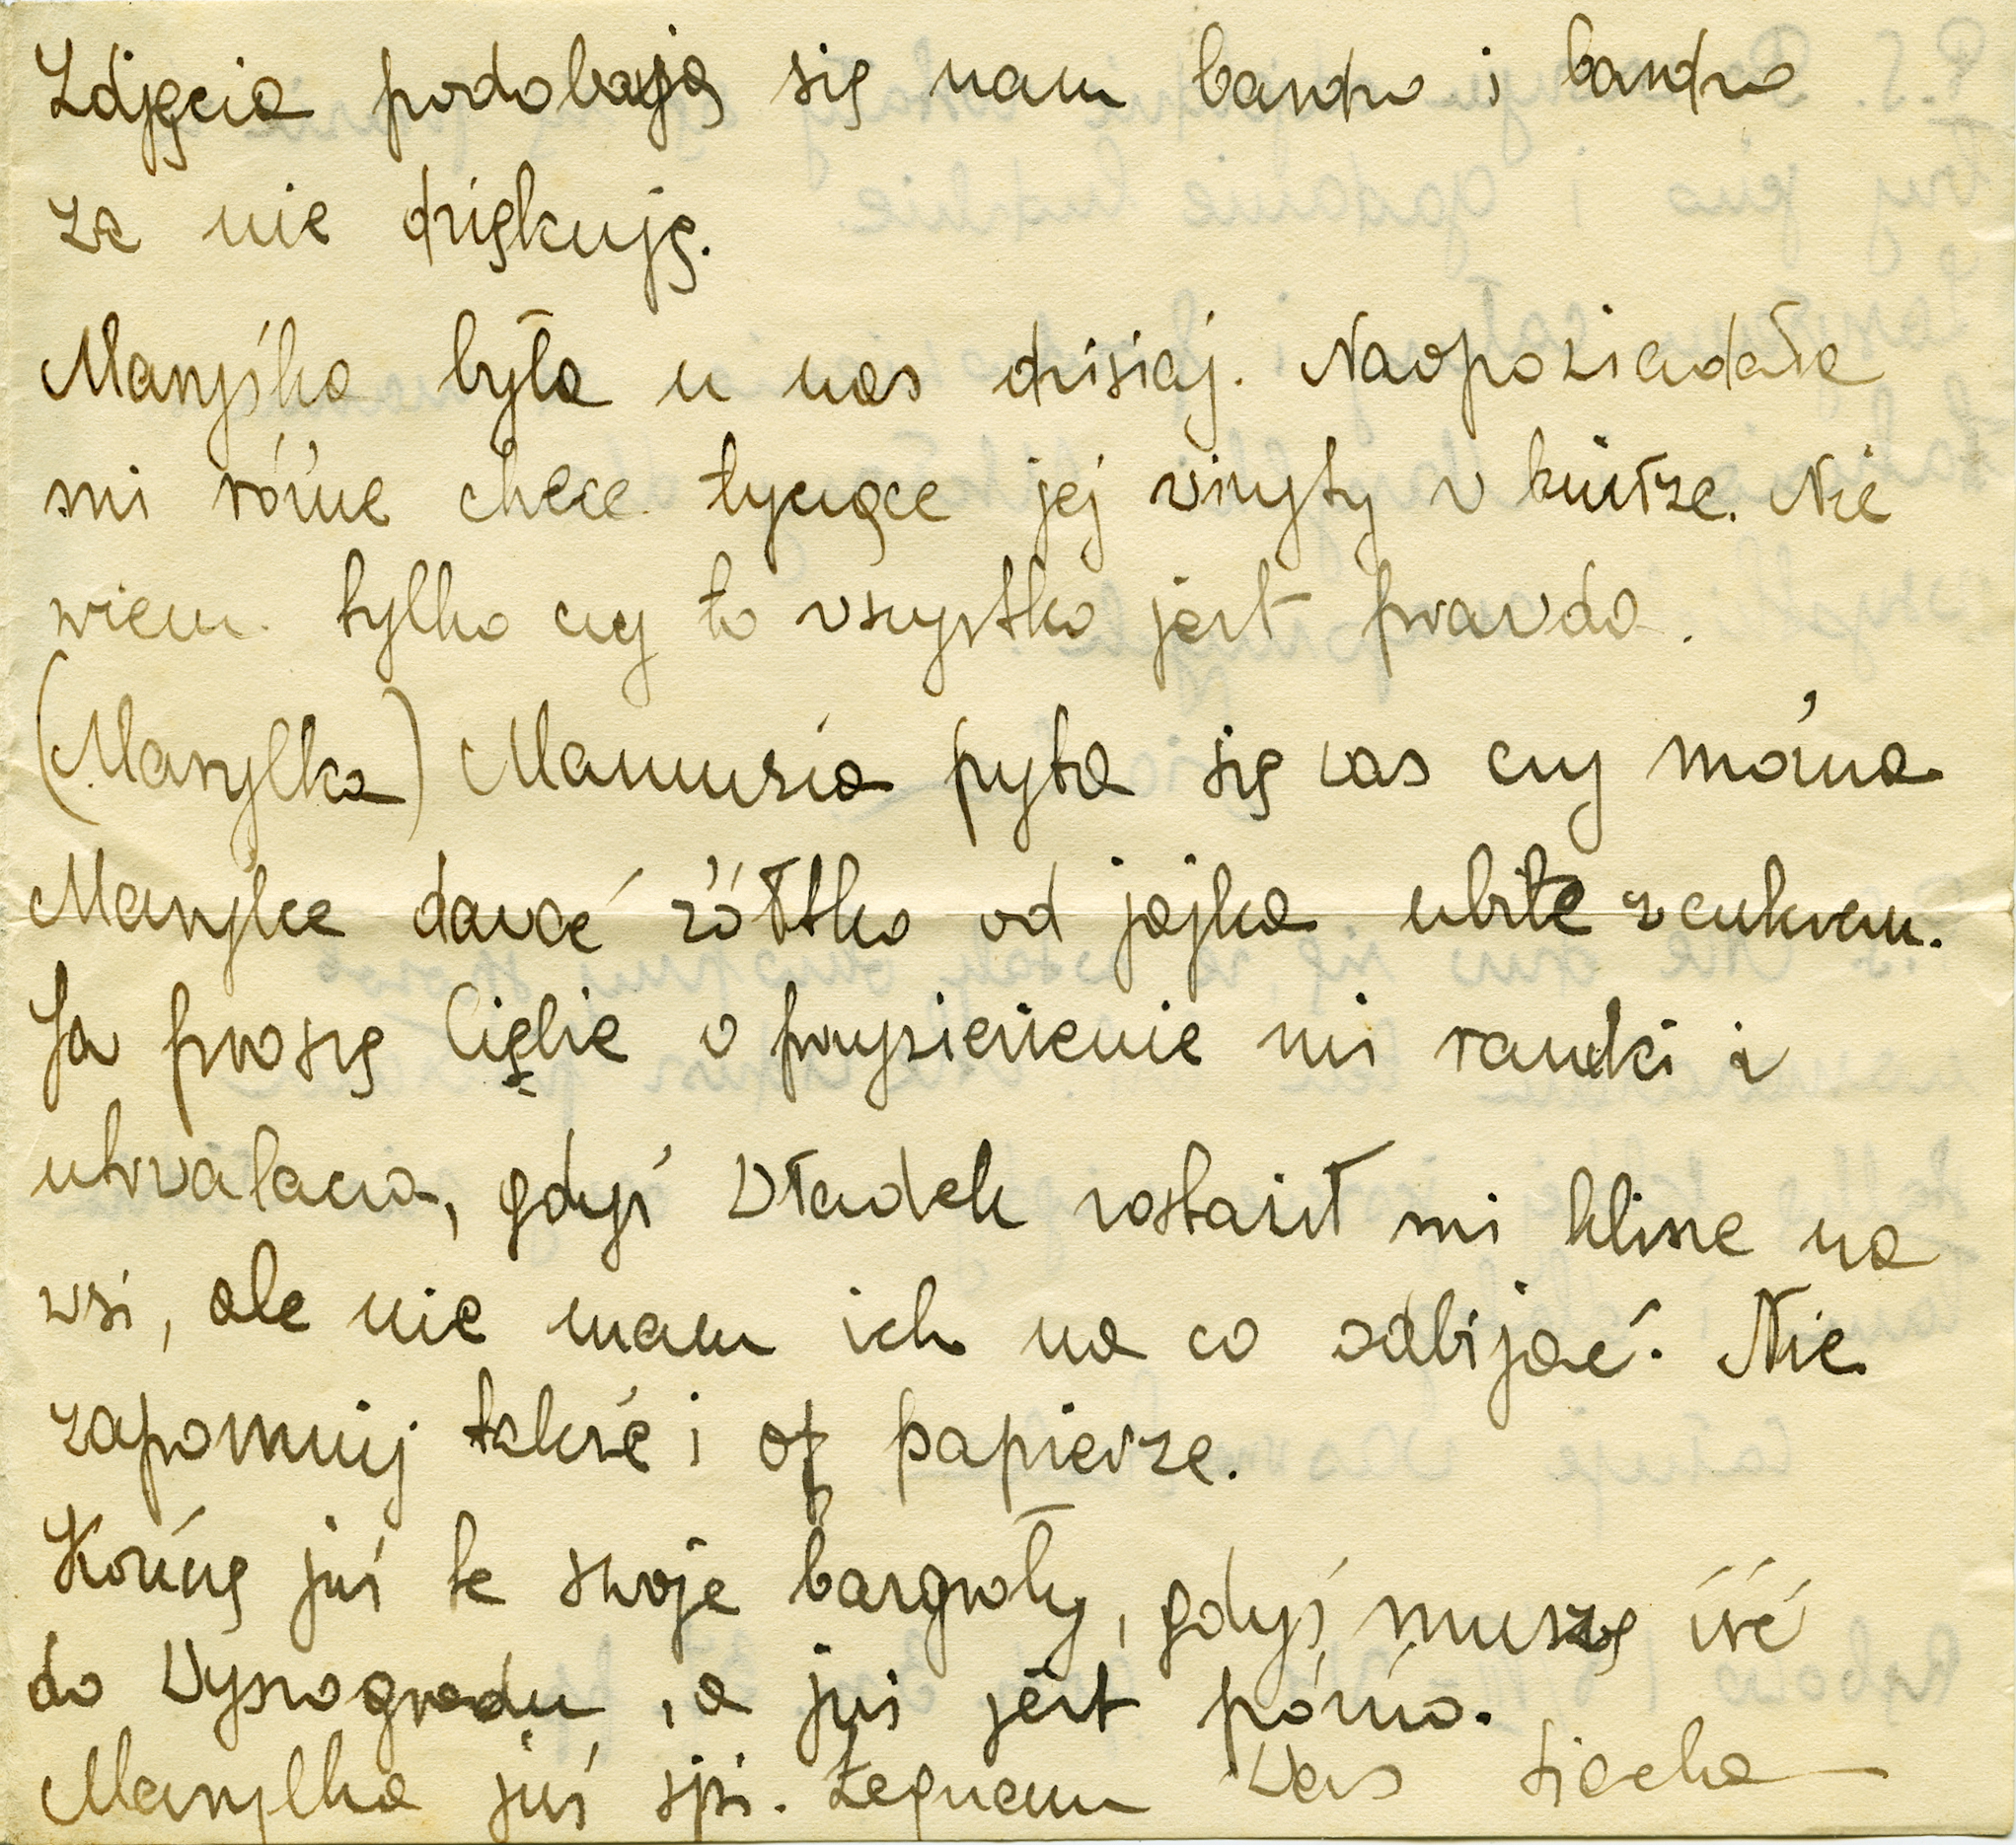 Zdjęcia podobają się nam bardzo i bardzo
za nie dziękuję.
Maryśka była u nas dzisiaj. Naopowiadała
mi różne hece tyczące jej wizyty w
wiem tylko czy to wszystko jest prawda.
(Marylka) Mamusia pyta się was czy można
Marylce dawać żółtko od jajka ubite z cukrem.
Ja proszę Ciebie o przywiezienie mi ramki i
utrwalacza, gdyż Władek zostawił mi klisze na
wsi, ale nie mam ich na co odbijać. Nie
zapomnij także i o papierze.
Kończę już te swoje bazgroły, gdyż muszę iść
do Wyszogrodu, a już jest późno.
Marylka już śpi. Żegnam Was